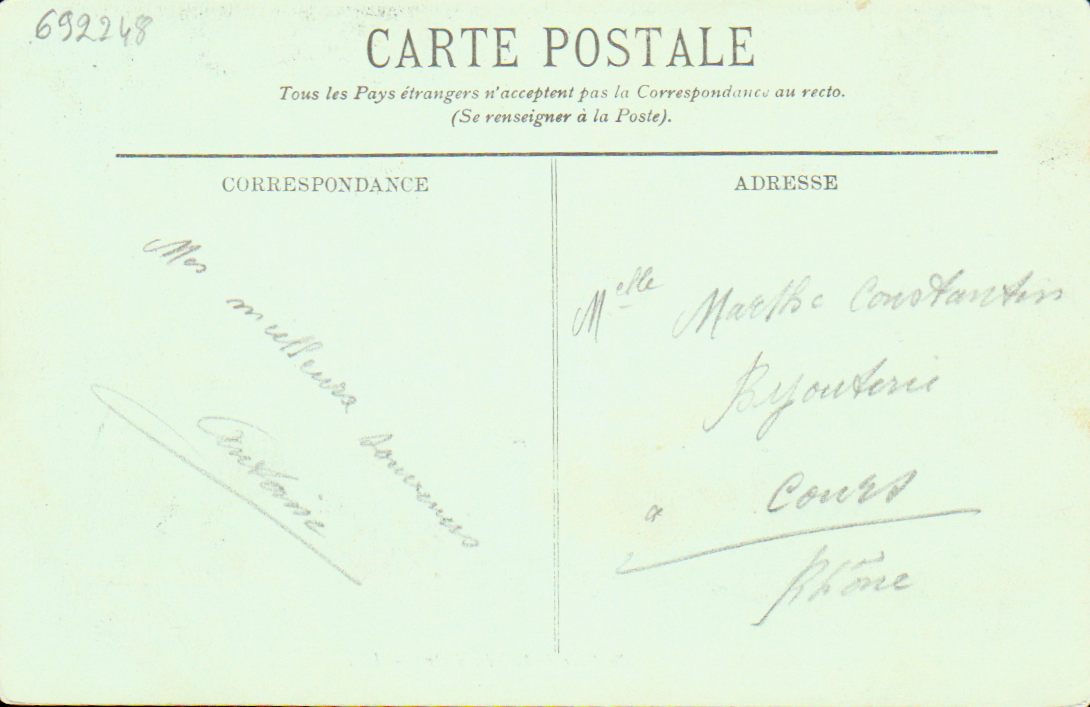 692248
CARTE POSTALE
Tous les Pays étrangers n'acceptent pas la Correspondance au recto.
(Se renseigner à la Poste).
CORRESPONDANCE
Mes
meilleurs
souvenirs
Antoine
ADRESSE
Melle Marthe Constantin
Bijouterie
a Cours
Rhône